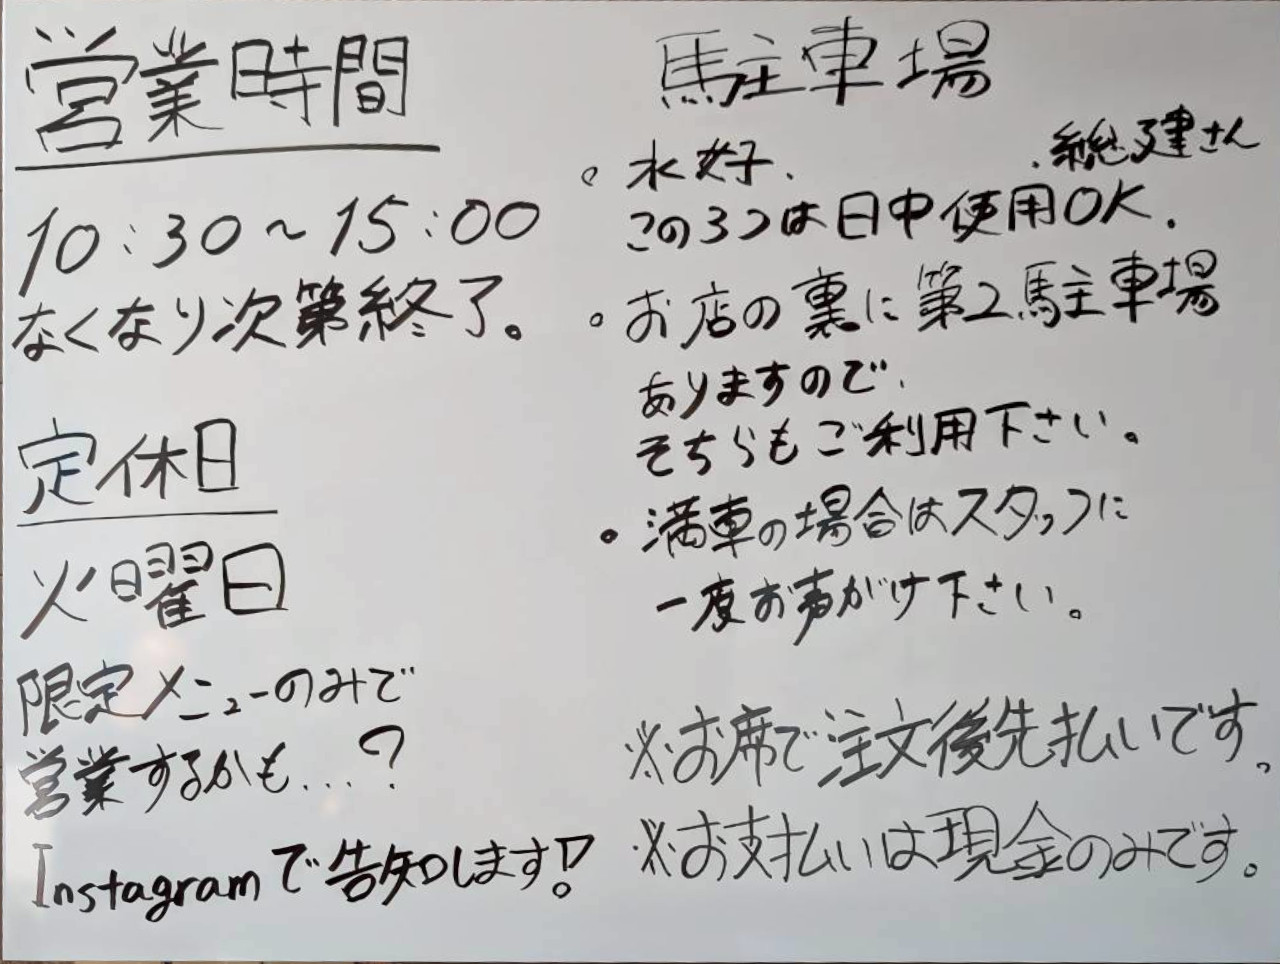 営業時間
10:30~15:00
なくなり次第終了。
定休日
火曜日
限定メニューのみで
営業するかも...?
Instagramで告知します!!
駐車場
・水好、 ・総建さん
この3つは日中使用OK.
・お店の裏に第2駐車場
ありますので、
そちらもご利用下さい。
・満車の場合はスタッフに
一度お声がけ下さい。
※お席で注文後先払いです。
※お支払いは現金のみです。